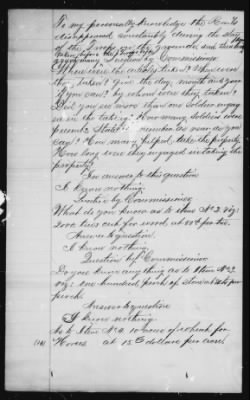 To my personal knowledge the
disappeared completely during the stay
of the Troops on the grounds and
taken before the
Question by Commissioner
When were the articles taken? Who were
they taken? Give the day, month and year
if you can? by whom were they taken?
Did you see more than one Soldier engag
ed in the taking? How many Soldiers were
present? State number as near as you
can? How many helped take the property
How long were they engaged in taking the
property?
For answer to this question
I know nothing.
Question by Commissioner
What do you know as to item No 2 viz:
cords of wood at per
Answer to question
I know nothing.
Question by Commissioner
Do you know any thing as to Item No 3
viz: one hundred perch of Stone at per
perch.
Answer to question
I know nothing.
As to Item No 4. 10 acres of wheat for
Horses at 15 dollars per acre